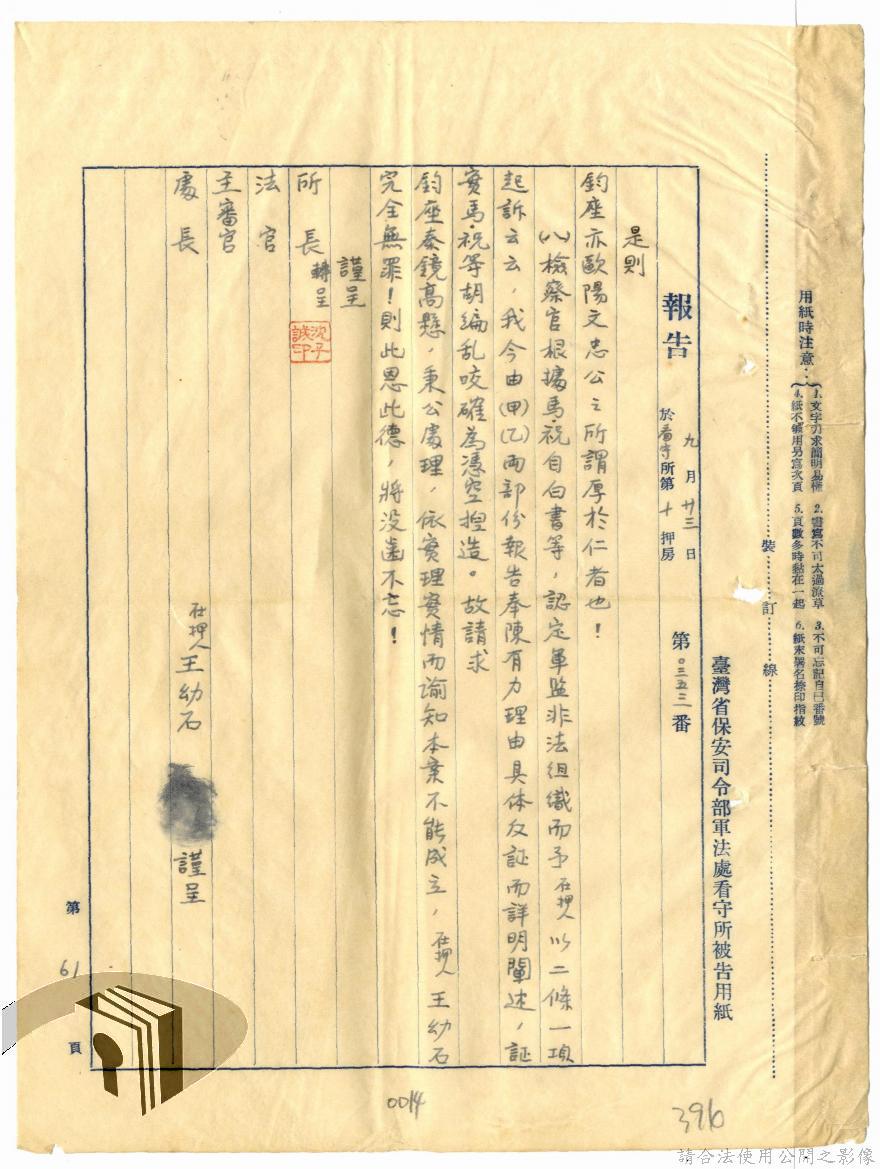 用紙時注意：
1.文字力求簡明易懂 2.書寫不可太過潦草 3.不可忘記自己番號
4.紙不够用另寫次頁 5.頁數多時黏在一起 6.紙末署名捺印指紋
裝訂線
臺灣省保安司令部軍法處看守所被告用紙
報告 九月廿三日 於看守所第十押房 第〇三五三番
是則
鈞座亦歐陽文忠公之所謂厚於仁者也！
(八)檢察官根據馬.祝自白書等，認定軍監非法組織而予在押人以二條一項
起訴云云，我今由(甲)(乙)両部份報告奉陳有力理由具体反証而詳明闡述，証
實馬.祝等胡編乱咬確為憑空捏造。故請求
鈞座秦鏡高懸，秉公處理，依實理實情而諭知本案不能成立，在押人王幼石
完全無罪！則此恩此德，將没齒不忘！
謹呈
所長轉呈
沈子誠印
法官
主審官
處長
在押人王幼石 謹呈
第61頁
0014
396
請合法使用公開之影像